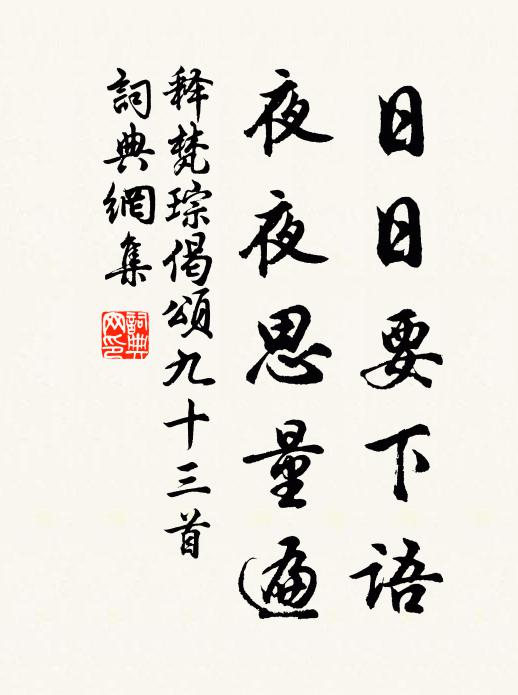 日日要下語
夜夜思量遍
释梵琮偈頌九十三首
詞典網集
詞典网印